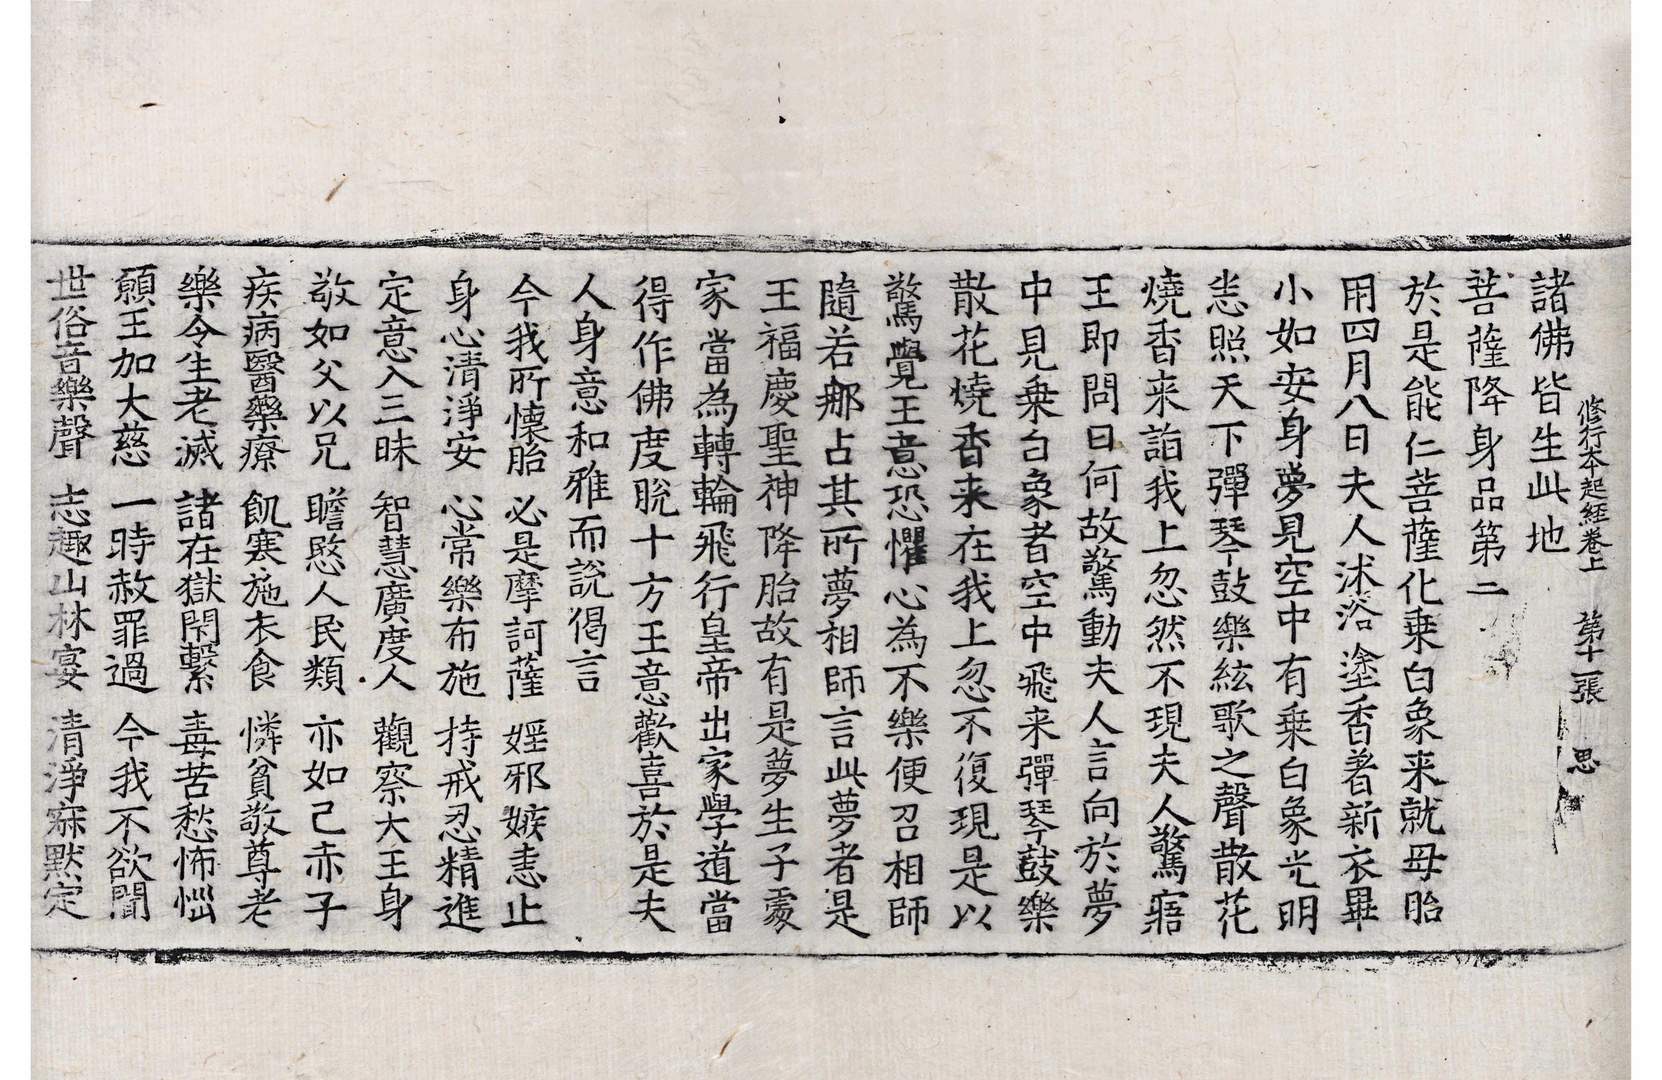 修行本起經卷上　第十一張　思
諸佛皆生此地
菩薩降身品第二
於是能仁菩薩化乗白象来就母胎
用四月八日夫人沐浴塗香著新衣畢
小如安身夢見空中有乗白象光明
悉照天下彈琴鼓樂絃歌之聲散花
燒香来詣我上忽然不現夫人驚寤
王即問曰何故驚動夫人言向於夢
中見乗白象者空中飛来彈琴鼓樂
散花燒香来在我上忽不復現是以
驚覺王意恐懼心為不樂便召相師
隨若耶占其所夢相師言此夢者是
王福慶聖神降胎故有是夢生子處
家當為轉輪飛行皇帝出家學道當
得作佛度脫十方王意歡喜於是夫
人身意和雅而說偈言
今我所懐胎　必是摩訶薩　婬邪嫉恚止
身心清淨安　心常樂布施　持戒忍精進
定意入三昧　智慧廣度人　觀察大王身
敬如父以兄　瞻愍人民類　亦如己赤子
疾病醫藥療　飢寒施衣食　憐貧敬尊老
樂令生老滅　諸在獄閇繫　毒苦愁怖惱
願王加大慈　一時赦罪過　今我不欲聞
世俗音樂聲　志趣山林宴　清淨寂默定